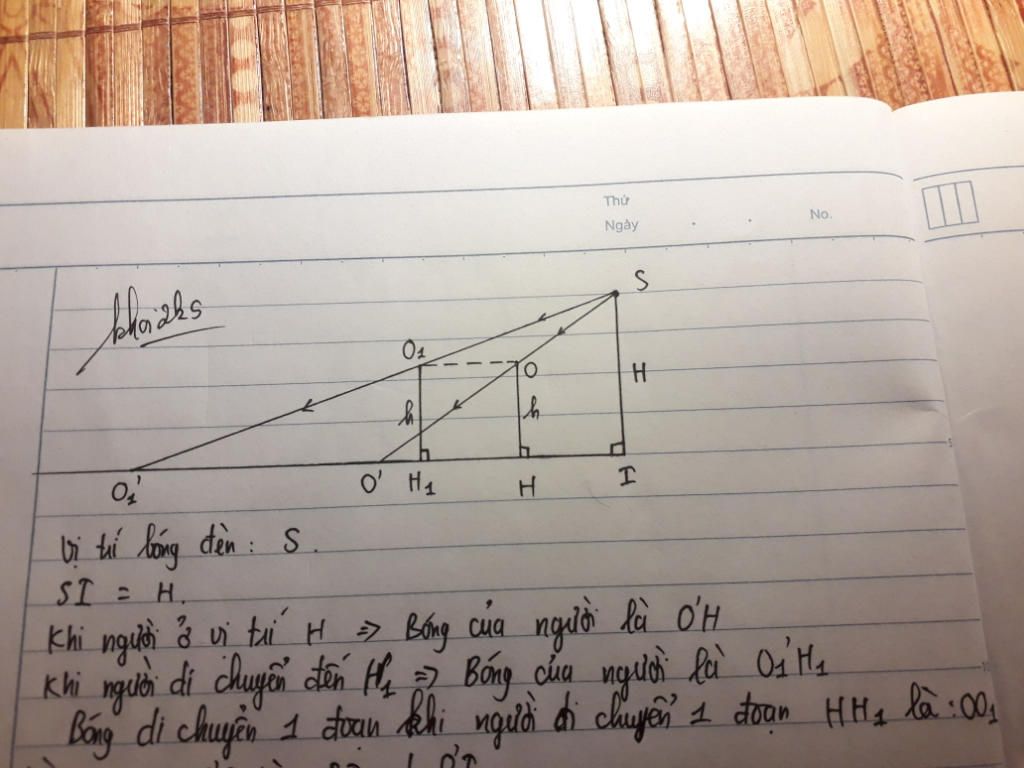 Thứ
Ngày . . No.
khoi2k5
S
O₁
O
H
h
h
O₁'
O'
H₁
H
I
Vị trí bóng đèn: S.
SI = H.
Khi người ở vị trí H => Bóng của người là O'H
Khi người di chuyển đến H₁ => Bóng của người là O₁'H₁
Bóng di chuyển 1 đoạn khi người di chuyển 1 đoạn HH₁ là: OO₁
O'I